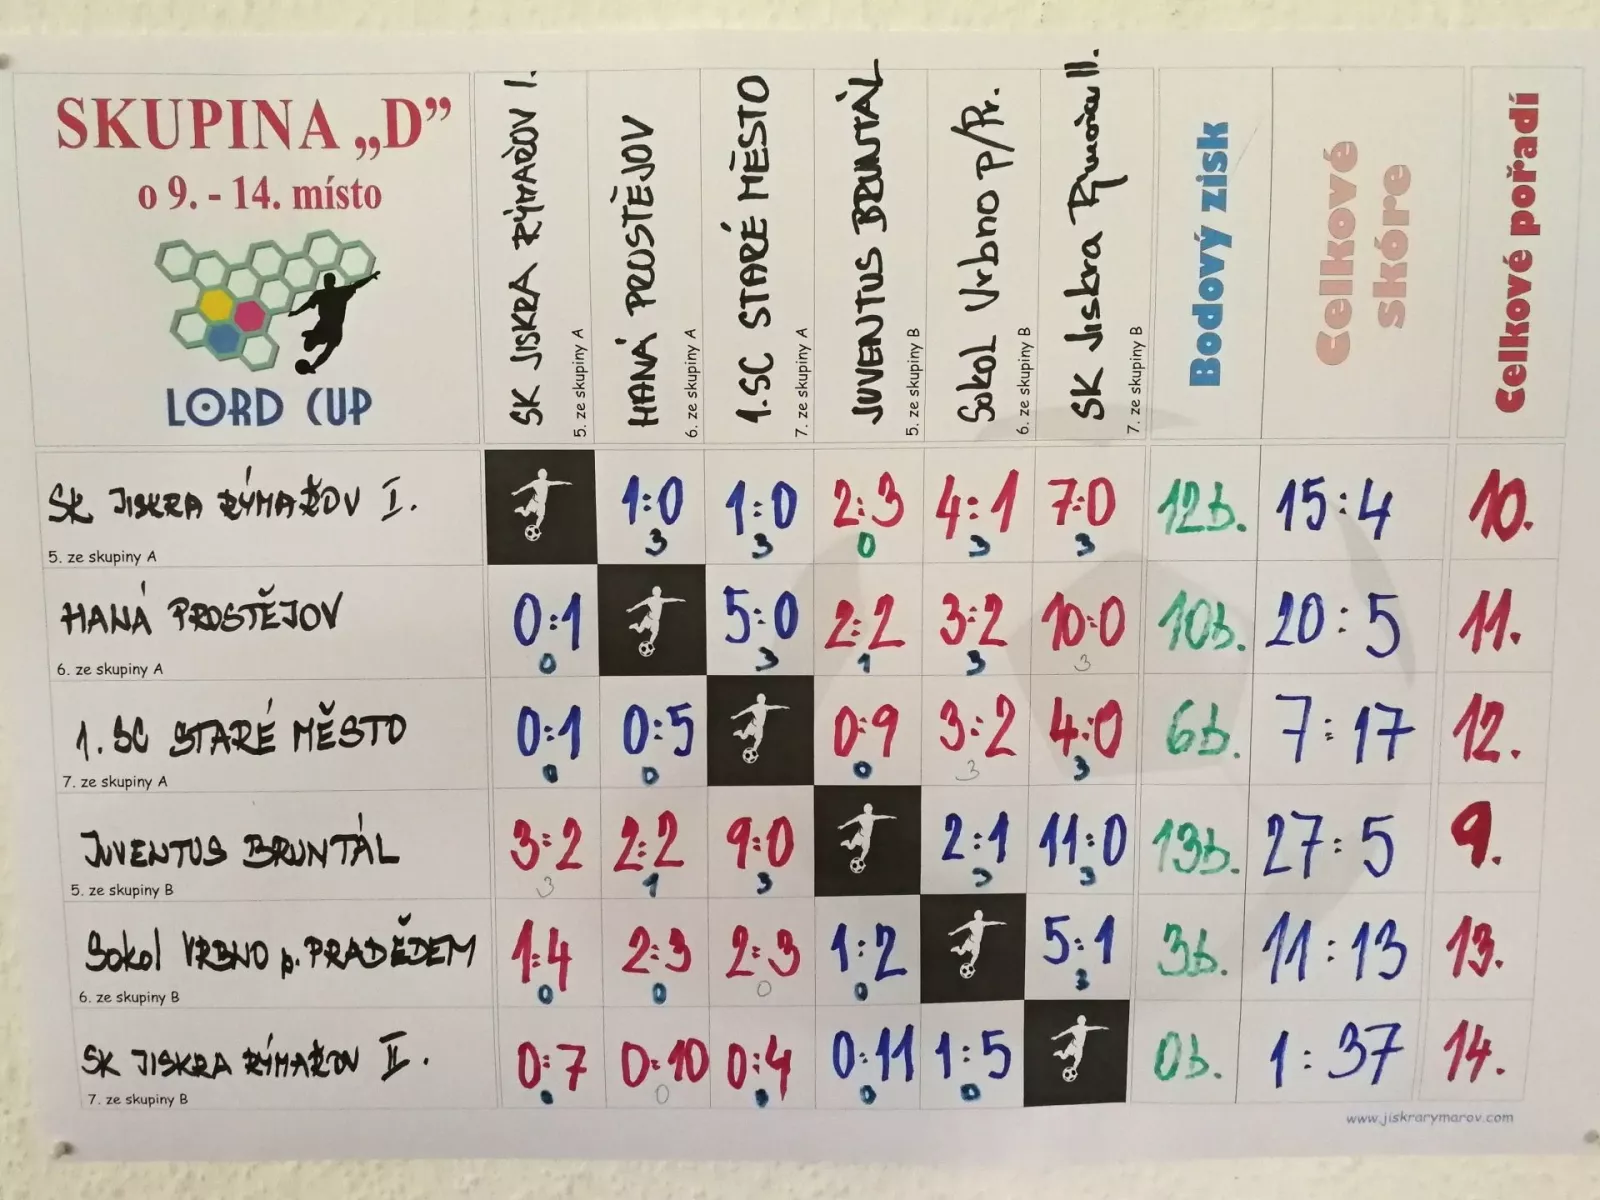 SKUPINA „D”
o 9. - 14. místo
LORD CUP
SK JISKRA RÝMAŘOV I.
5. ze skupiny A
HANÁ PROSTĚJOV
6. ze skupiny A
1. SC STARÉ MĚSTO
7. ze skupiny A
JUVENTUS BRUNTÁL
5. ze skupiny B
Sokol Vrbno p/Pr.
6. ze skupiny B
SK Jiskra Rýmařov II.
7. ze skupiny B
Bodový zisk
Celkové skóre
Celkové pořadí
SK JISKRA RÝMAŘOV I. 1:0 1:0 2:3 4:1 7:0 12b. 15:4 10.
5. ze skupiny A 3 3 0 3 3
HANÁ PROSTĚJOV 0:1 5:0 2:2 3:2 10:0 10b. 20:5 11.
6. ze skupiny A 0 3 1 3 3
1. SC STARÉ MĚSTO 0:1 0:5 0:9 3:2 4:0 6b. 7:17 12.
7. ze skupiny A 0 0 0 3 3
JUVENTUS BRUNTÁL 3:2 2:2 9:0 2:1 11:0 13b. 27:5 9.
5. ze skupiny B 3 1 3 3 3
Sokol VRBNO p. PRADĚDEM 1:4 2:3 2:3 1:2 5:1 3b. 11:13 13.
6. ze skupiny B 0 0 0 0 3
SK JISKRA RÝMAŘOV II. 0:7 0:10 0:4 0:11 1:5 0b. 1:37 14.
7. ze skupiny B 0 0 0 0 0
www.jiskrarymarov.com